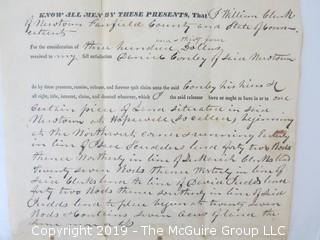 KNOW ALL MEN BY THESE PRESENTS, That I William Clark
of Newtown Fairfield County and State of Conn-
ecticut
For the consideration of three hundred and thirty four Dollars,
received to my full satisfaction of Daniel Conley of said Newtown
do by these presents, remise, release, and forever quit claim unto the said Conley his heirs &
all right, title, interest, claim, and demand whatever, which I the said releasor have or ought to have in or to one
Certain piece of Land situated in said
Newtown at Hopewell So called, beginning
at the Northwest corner running Easterly
in line of Scudder land forty two Rods
thence Northerly in line of Clark land
twenty seven Rods thence Westerly in line
said Clarks land & land of David Judds land
forty two Rods thence southerly in line of said
Judds land to place began at twenty seven
Rods & Containing seven Acres of land the
Copyright 2019 - Proxibid.com